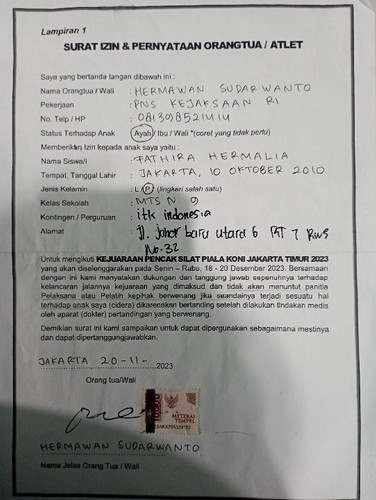 Lampiran 1
SURAT IZIN & PERNYATAAN ORANGTUA / ATLET
Saya yang bertanda tangan dibawah ini :
Nama Orangtua / Wali : HERMAWAN SUDARWANTO
Pekerjaan : PNS KEJAKSAAN RI
No. Telp / HP : 081398521414
Status Terhadap Anak : Ayah / Ibu / Wali *(coret yang tidak perlu)
Memberikan Izin kepada anak saya yaitu :
Nama Siswa/i : FATHIRA HERMALIA
Tempat, Tanggal Lahir : JAKARTA, 10 OKTOBER 2010
Jenis Kelamin : L / P (lingkari salah satu)
Kelas Sekolah : MTS N 9
Kontingen / Perguruan : itk indonesia
Alamat : Jl. Johor baru utara 6 RT 7 RW5
No.32
Untuk mengikuti KEJUARAAN PENCAK SILAT PIALA KONI JAKARTA TIMUR 2023
yang akan diselenggarakan pada Senin – Rabu, 18 - 20 Desember 2023. Bersamaan
dengan ini kami menyatakan dukungan dan tanggung jawab sepenuhnya terhadap
kelancaran jalannya kejuaraan yang dimaksud dan tidak akan menuntut panitia
Pelaksana atau Pelatih kepihak berwenang jika seandainya terjadi sesuatu hal
terhadap anak saya (cidera) dikarenakan bertanding setelah dilakukan tindakan medis
oleh aparat (dokter) pertandingan yang berwenang.
Demikian surat ini kami sampaikan untuk dapat dipergunakan sebagaimana mestinya
dan dapat dipertanggungjawabkan.
JAKARTA 20-11- 2023
Orang tua/Wali
METERAI
TEMPEL
HERMAWAN SUDARWANTO
Nama Jelas Orang Tua / Wali